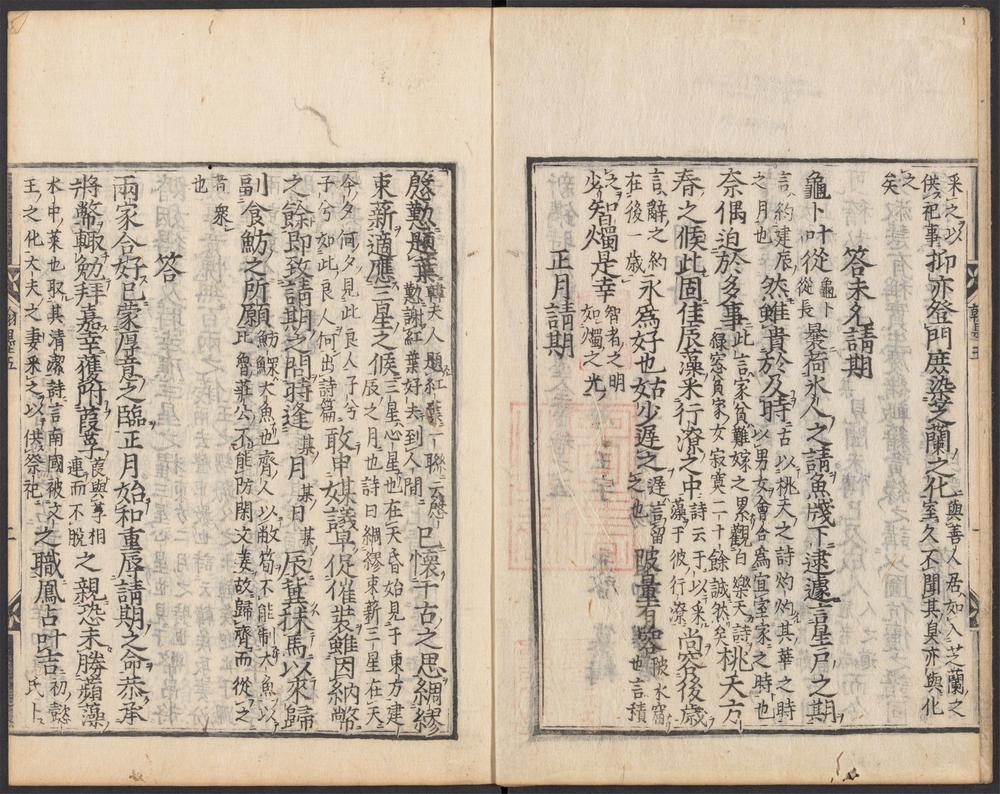 采之以
供祀事抑亦登門庶染芝蘭之化與善人居如入芝蘭之室久不聞其臭亦與化
之矣
答未允請期
龜卜叶從龜卜從長曷荷氷人之請魚牋下逮遽言星戶之期
言約建辰之月也然雖貴於及時古以桃夭之詩灼灼其華之時以男女會合為宜室家之時也
奈偶迫於多事此言家貧難嫁之累觀白樂天詩綠窓貧家女寂寞二十餘誠然矣桃夭方
春之候此固佳辰藻采行潦之中詩云于以采藻于彼行潦尚容後歲
言辭之約在後一歲永為好也姑少遲之遲言留之也陂量有容陂水窟也言積
少之智燭是幸智者之明如燭之光
正月請期
慇懃題葉韓夫人題紅葉一聯云慇懃謝紅葉好去到人間已懷千古之思綢繆
束薪適應三星之候三星心星也在天昏始見于東方建辰之月也詩曰綢繆束薪三星在天
今夕何夕見此良人子兮子兮如此良人何出詩篇敢申某議亶促催裝雖因納幣
之餘即致請期之問時逢某月某日辰冀秣馬以來歸
則食魴之所願魴鰥大魚也齊人以敝笱不能制大魚以
比魯莊公不能防閑文姜故歸齊而從之者衆
也
答
兩家合好已蒙厚意之臨正月始和重辱請期之命恭承
將幣輙勉拜嘉幸獲附葭莩葭與莩相連而不脫之親恐未勝蘋藻
水中菜也取其清潔詩言南國被文王之化大夫之妻采之以供祭祀之職鳳占叶吉初懿氏卜